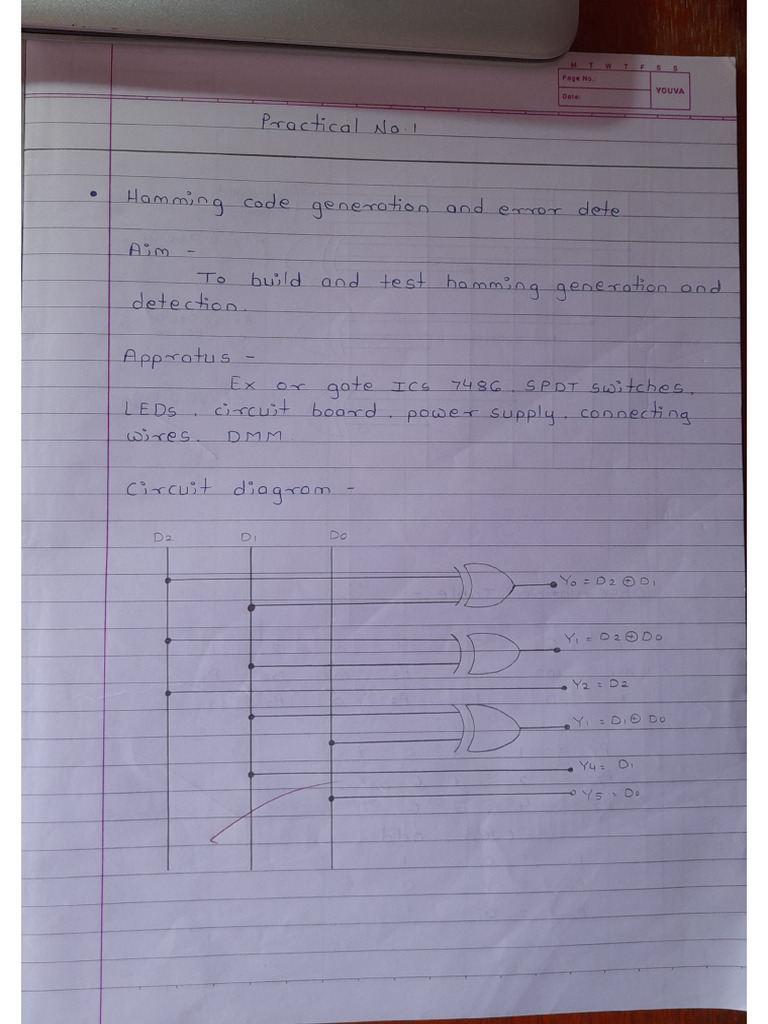 M T W T F S S
Page No.:
YOUVA
Date:
Practical No.1
• Hamming code generation and error dete
Aim -
To build and test hamming generation and
detection.
Appratus -
Ex or gate ICs 7486. SPDT switches.
LEDs. circuit board. power supply. connecting
wires. DMM
Circuit diagram -
D2 D1 D0
Y0 = D2 ⊕ D1
Y1 = D2 ⊕ D0
Y2 = D2
Y1 = D1 ⊕ D0
Y4 = D1
Y5 = D0